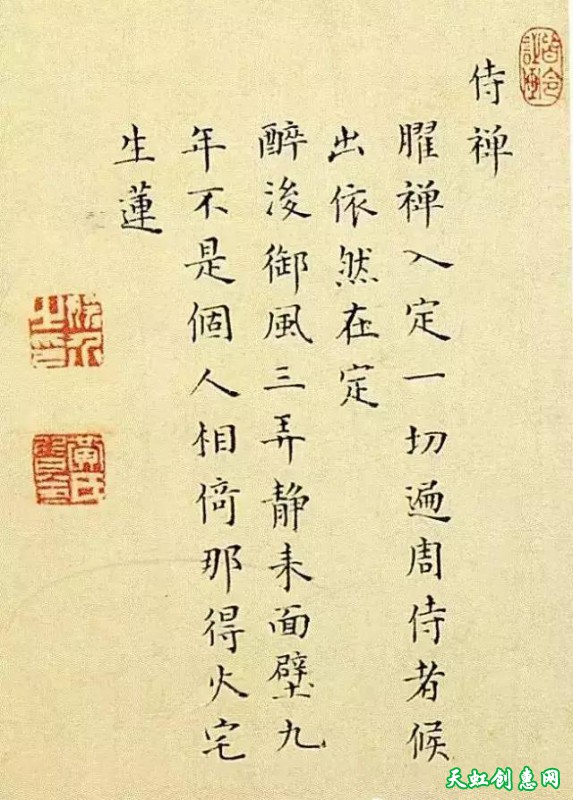 侍禅
臞禅入定一切遍周侍者候
出依然在定
醉後御風三弄静来面壁九
年不是個人相倚那得火宅
生蓮
天虹创惠网